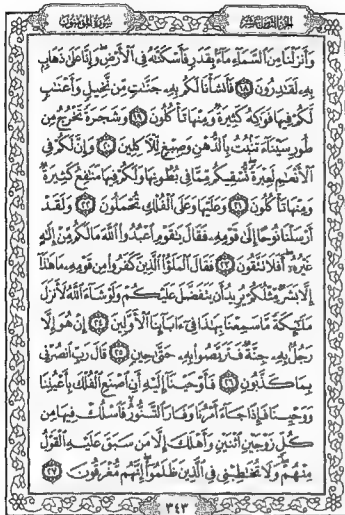 سورة المؤمنون
الجزء الثامن عشر
وَأَنزَلْنَا مِنَ ٱلسَّمَآءِ مَآءًۢ بِقَدَرٍ فَأَسْكَنَّٰهُ فِى ٱلْأَرْضِ ۖ وَإِنَّا عَلَىٰ ذَهَابٍۭ
بِهِۦ لَقَٰدِرُونَ ١٨ فَأَنشَأْنَا لَكُم بِهِۦ جَنَّٰتٍ مِّن نَّخِيلٍ وَأَعْنَٰبٍ
لَّكُمْ فِيهَا فَوَٰكِهُ كَثِيرَةٌ وَمِنْهَا تَأْكُلُونَ ١٩ وَشَجَرَةً تَخْرُجُ مِن
طُورِ سَيْنَآءَ تَنۢبُتُ بِٱلدُّهْنِ وَصِبْغٍ لِّلْءَاكِلِينَ ٢٠ وَإِنَّ لَكُمْ فِى
ٱلْأَنْعَٰمِ لَعِبْرَةً ۖ نُّسْقِيكُم مِّمَّا فِى بُطُونِهَا وَلَكُمْ فِيهَا مَنَٰفِعُ كَثِيرَةٌ
وَمِنْهَا تَأْكُلُونَ ٢١ وَعَلَيْهَا وَعَلَى ٱلْفُلْكِ تُحْمَلُونَ ٢٢ وَلَقَدْ
أَرْسَلْنَا نُوحًا إِلَىٰ قَوْمِهِۦ فَقَالَ يَٰقَوْمِ ٱعْبُدُوا۟ ٱللَّهَ مَا لَكُم مِّنْ إِلَٰهٍ
غَيْرُهُۥٓ ۖ أَفَلَا تَتَّقُونَ ٢٣ فَقَالَ ٱلْمَلَؤُا۟ ٱلَّذِينَ كَفَرُوا۟ مِن قَوْمِهِۦ مَا هَٰذَآ
إِلَّا بَشَرٌ مِّثْلُكُمْ يُرِيدُ أَن يَتَفَضَّلَ عَلَيْكُمْ وَلَوْ شَآءَ ٱللَّهُ لَأَنزَلَ
مَلَٰٓئِكَةً مَّا سَمِعْنَا بِهَٰذَا فِىٓ ءَابَآئِنَا ٱلْأَوَّلِينَ ٢٤ إِنْ هُوَ إِلَّا
رَجُلٌۢ بِهِۦ جِنَّةٌ فَتَرَبَّصُوا۟ بِهِۦ حَتَّىٰ حِينٍ ٢٥ قَالَ رَبِّ ٱنصُرْنِى
بِمَا كَذَّبُونِ ٢٦ فَأَوْحَيْنَآ إِلَيْهِ أَنِ ٱصْنَعِ ٱلْفُلْكَ بِأَعْيُنِنَا
وَوَحْيِنَا فَإِذَا جَآءَ أَمْرُنَا وَفَارَ ٱلتَّنُّورُ ۙ فَٱسْلُكْ فِيهَا مِن
كُلٍّ زَوْجَيْنِ ٱثْنَيْنِ وَأَهْلَكَ إِلَّا مَن سَبَقَ عَلَيْهِ ٱلْقَوْلُ
مِنْهُمْ ۖ وَلَا تُخَٰطِبْنِى فِى ٱلَّذِينَ ظَلَمُوٓا۟ ۖ إِنَّهُم مُّغْرَقُونَ ٢٧
٣٤٣